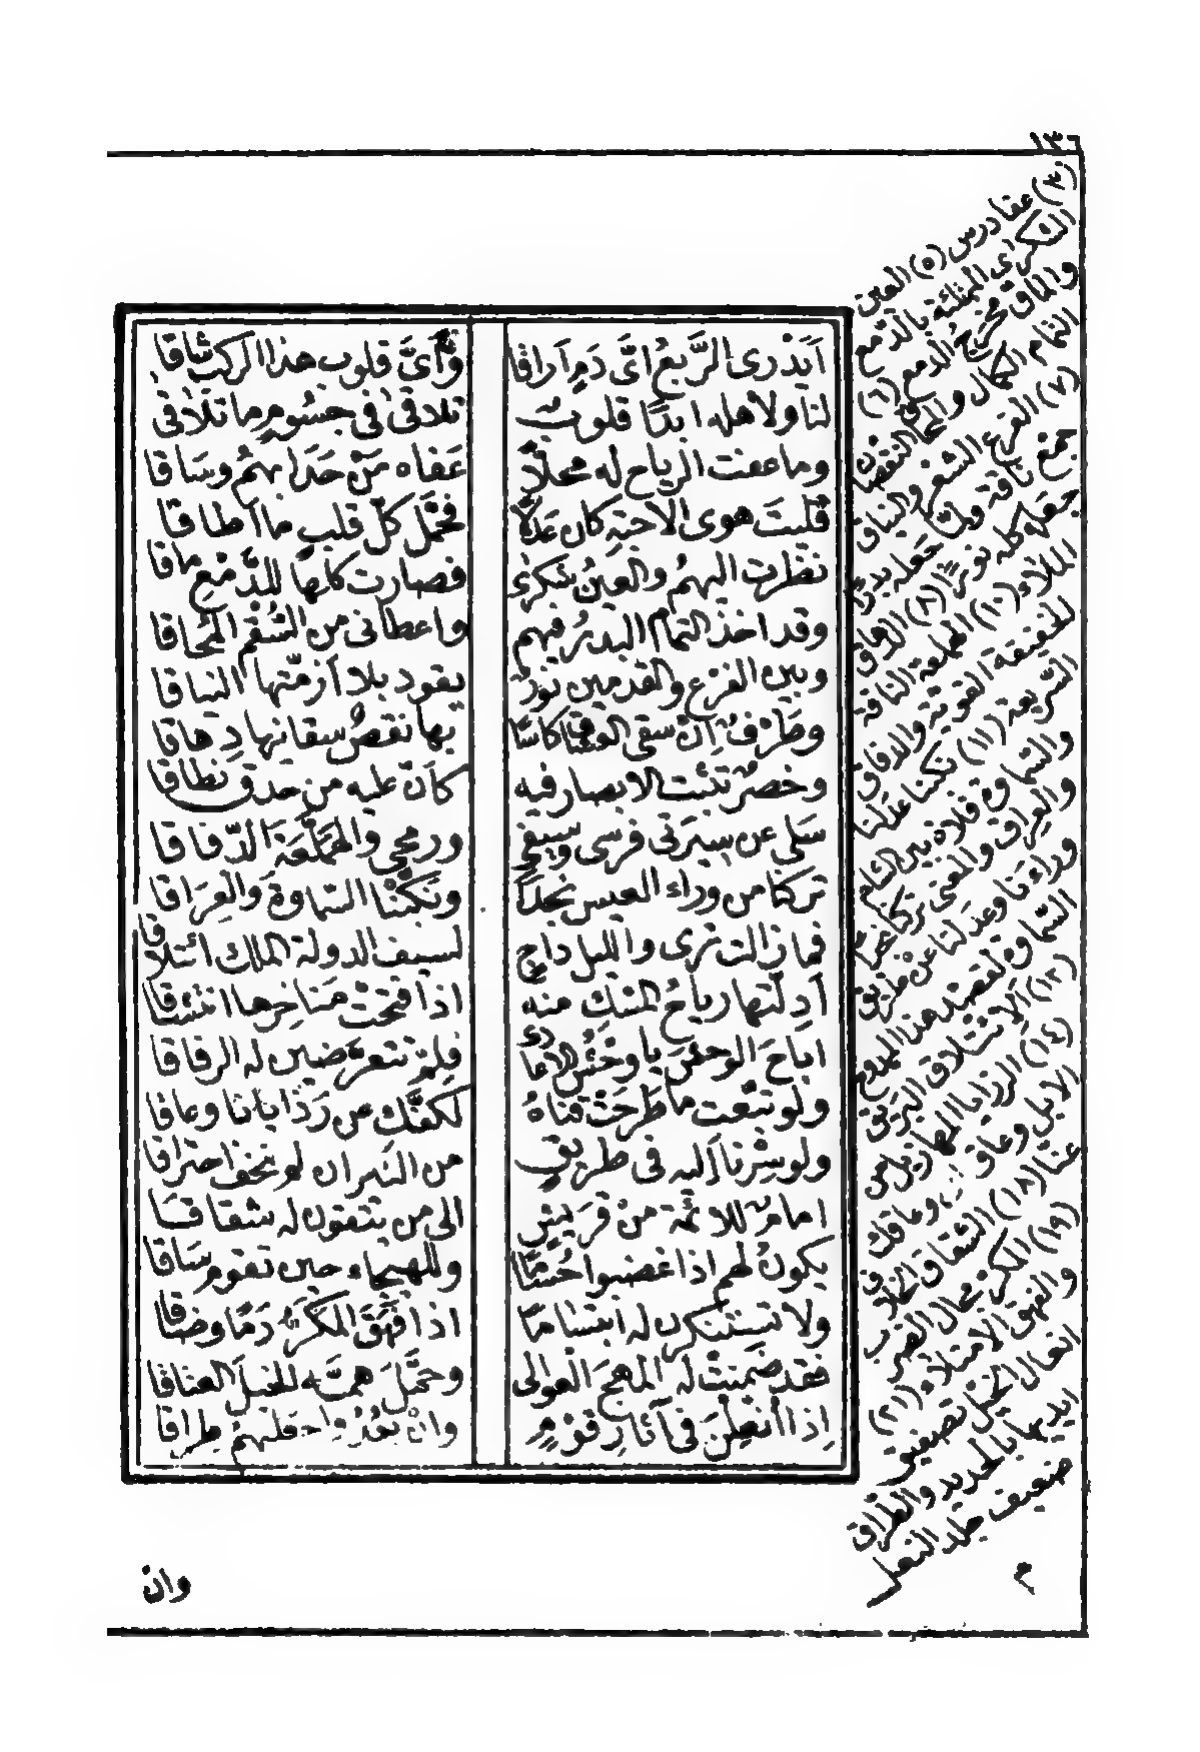 ١٣٦
أَيَدْرِى الرَّبعُ اىَّ دَمٍ اَرَاقَا وَأىَّ قلوب هذا الركب شاقا
لنا ولاهله ابدًا قلوب تلاقىٰ فى جسُومٍ ما تلاقىٰ
وما عفت الرياح له محلاًّ عَفاه مَنْ حَدَا بهمُ وسَاقا
فليْتَ هوى الاحبّةِ كان عَدلاً فحَمَّل كلَّ قلبٍ ما اَطاقا
نظرْت اليهمُ والعينُ شكرٰى فصارت كلها للدَّمْعِ ماقا
وقد اخذ التمام البدرُ فيهم واعطانى من السُّقْمِ المُحاقا
وبين الفرْع والقدمين نورٌ يقود بلا اَزمّتها النياقا
وطَرْفٌ اِنْ سقى العشاق كاسًا بها نقصٌ سقانيها دِهاقا
وخصْرٌ تثبت الابصار فيه كاَنَّ عليه من حدقٍ نطاقا
سَلى عن سِيرَتى فرسى وسيفى ورمحى والهَمَلَّعَةَ الدّفاقا
تركنا من وراء العيس نجدًا ونَكَّبْنا السّماوةَ والعِرَاقا
فما زالت ترى والليل داجٍ لسيف الدولة الملك ائتلاقا
اَدِلّتها رياحُ المسْك منه اذا فتحتْ مَناخِرها انتشاقا
اباحَ الوحشَ يا وَحْشُ الاعادى فلِمْ تتعرَّضين له الرفاقا
ولو تبّعتِ ما طَرَحَتْ قناهُ لكفَّكِ عن رَذايانا وعاقا
ولو سِرْنا اليه فى طريقٍ من النيران لم نخف احتراقا
امامٌ للائمّة مِنْ قُرَيشٍ الى من يتقون له شقاقا
يكونُ لهم اذا غضبوا حُسَامًا وللهيجاء حين تقوم سَاقا
ولا تستنكرن له ابتسَامًا اذا فَهِقَ المَكَرُّ دَمًا وضاقا
فقد ضمِنتْ له المُهَجَ العوالى وحَمَّلَ هَمَّه الخيلَ العتاقا
اِذا أُنعِلْنَ فى آثارِ قوْمٍ وانْ بعُدُوا جعلنهُمْ طِراقا
(٤) عفا درس (٥) العين
الشكرى الممتلئة بالدّمع
والماق مخرج الدمع (٦)
التمام الكمال والمحاق النقصان
(٧) الفرع الشعر والنياق
جمع ناقة ولمّا جعله بدرًا
جعله كله نورًا (٨) الدهاق
الملاء (١٠) الهملعة الناقة
الخفيفة القوية والدفاق
السّريعة (١١) نكبنا عدلنا
والسّماوة فلاة بين الشام
والعراق والمعنى تركنا نجدًا
وراءنا وعدلنا عن طريق
السّماوة لقصد هذا الممدوح
(١٢) الائتلاق البَريق
(١٤) الرذايا المهازيل من
الابل وعاق ... وعاقك
عنّا (١٨) الشقاق الخلاف
(١٩) المكرّ مجال الضرب
والفهق الامتلاء (٢١)
انعال الخيل تصفيق
ايديها بالحديد والطراق
ضعيف جلد النعل
م
وان